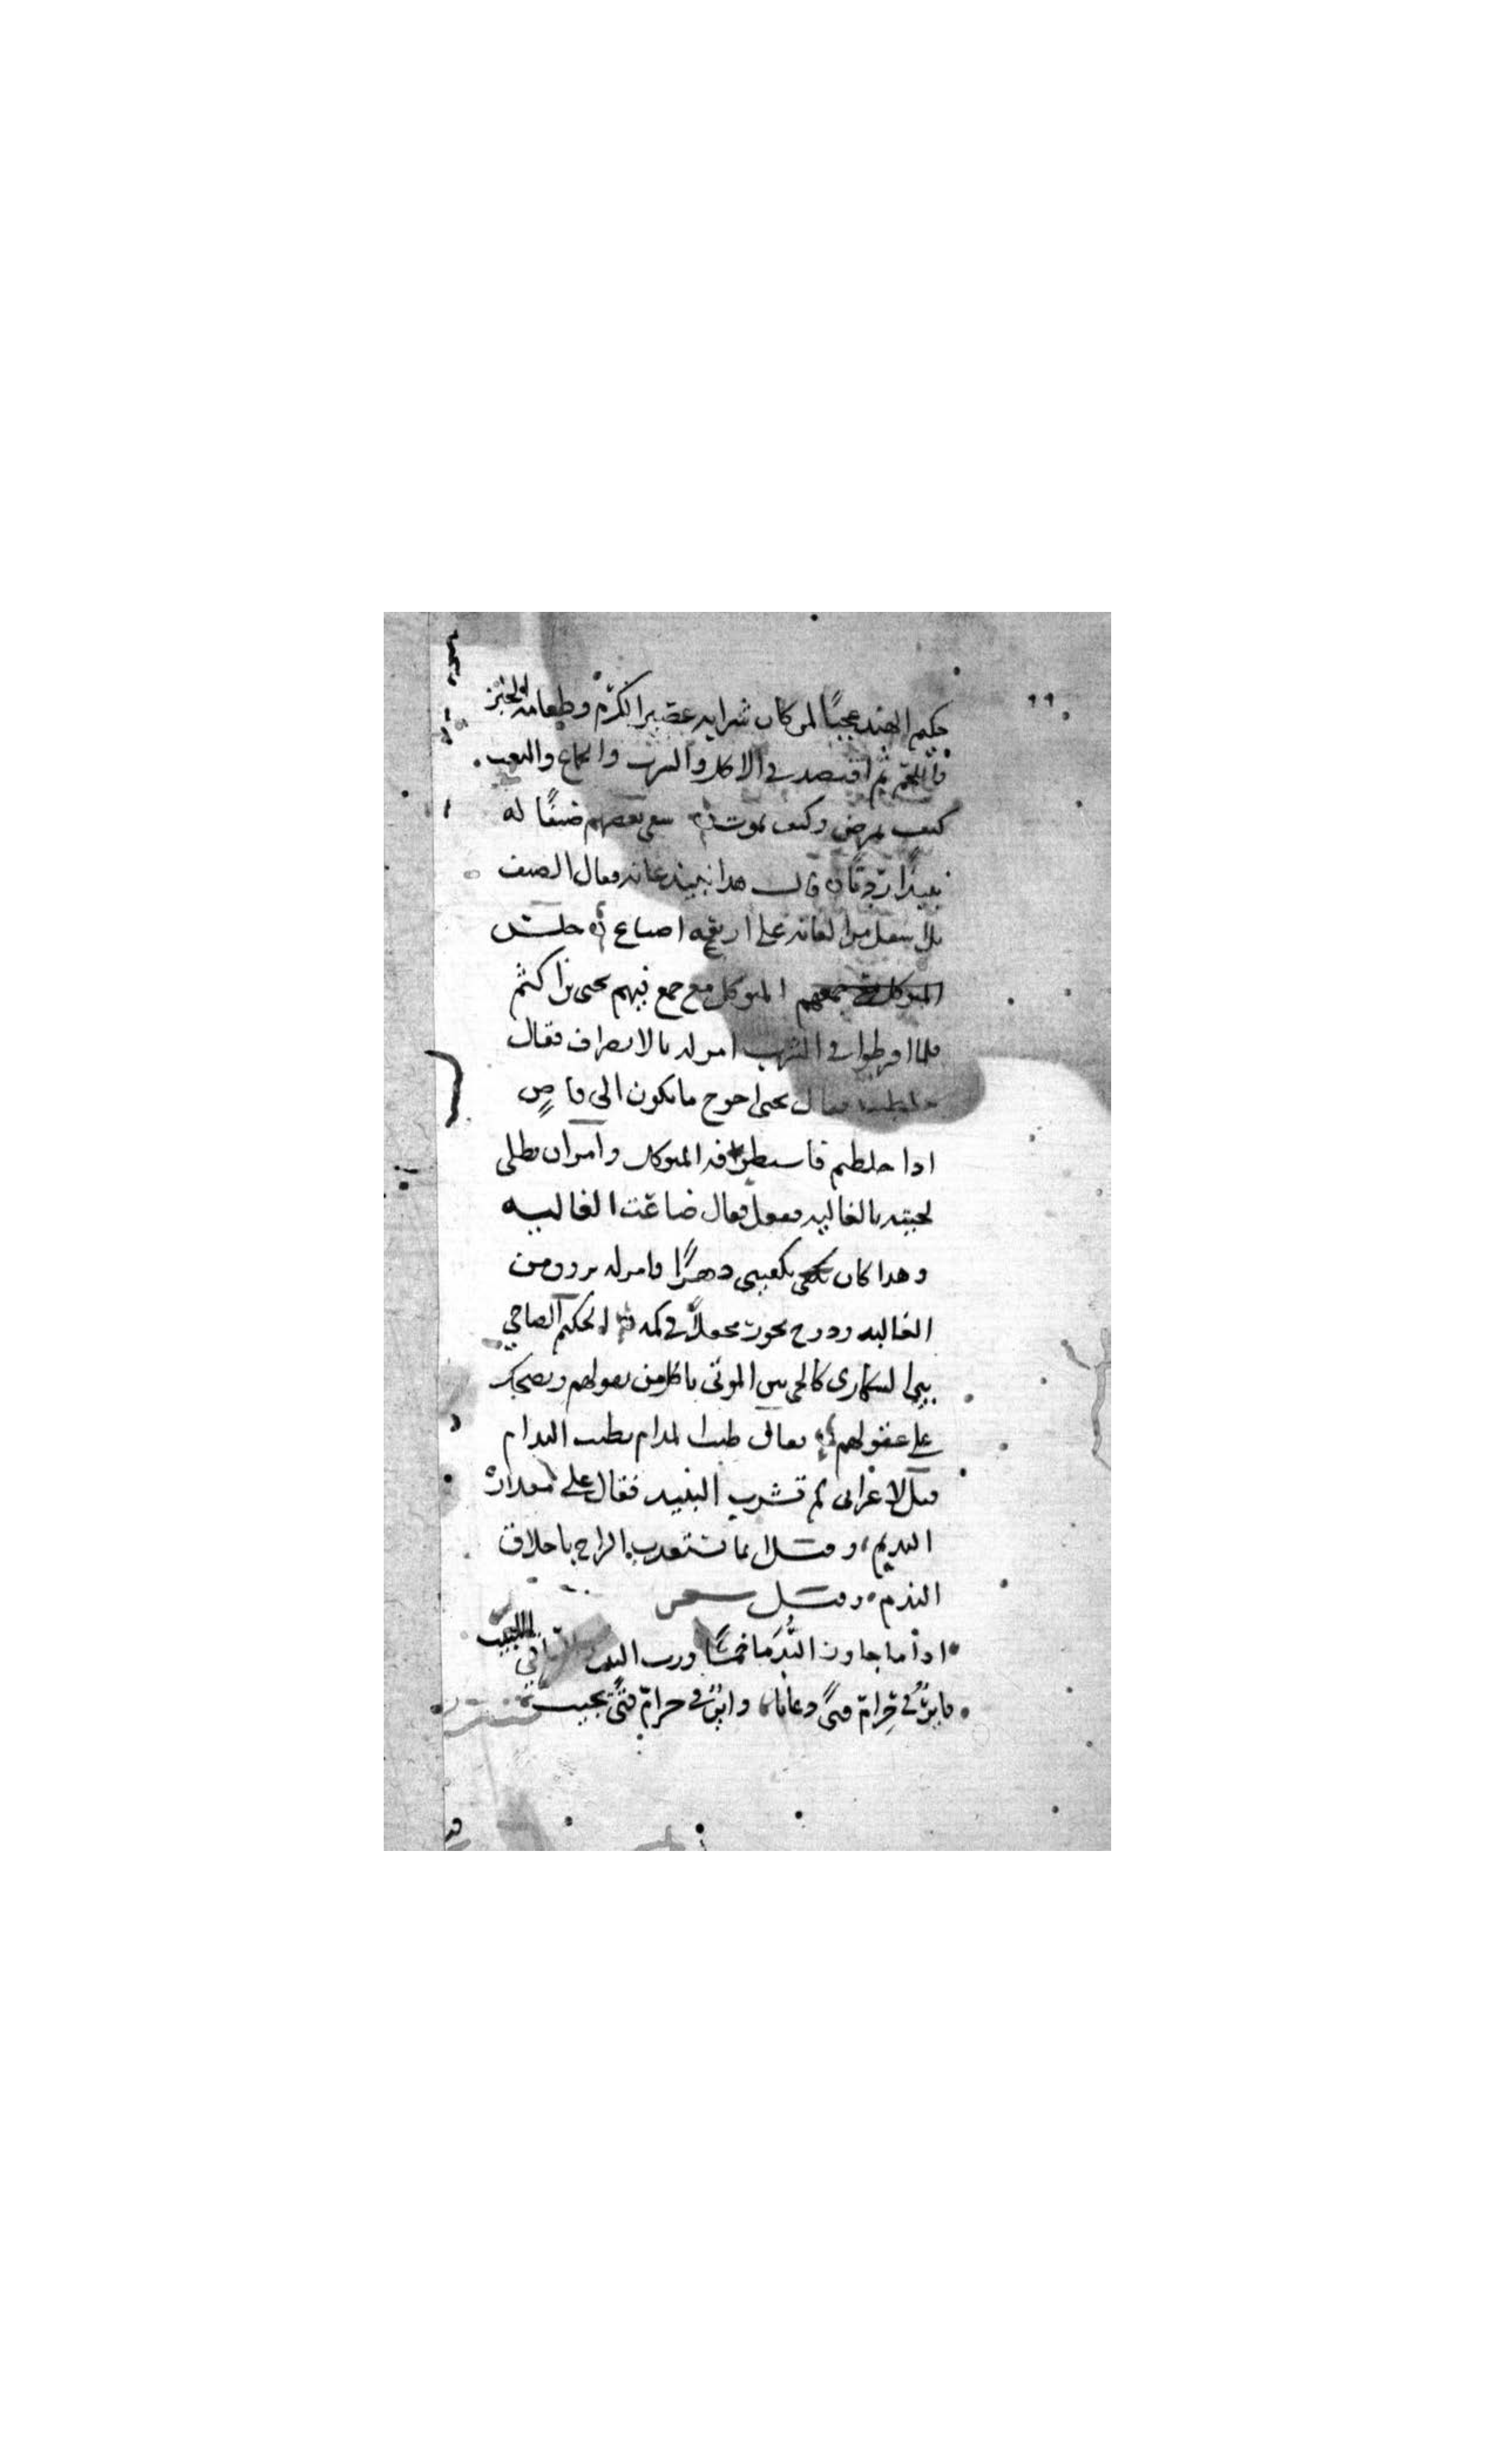 حكيم الهند عجبًا لمن كان شرابه عصير الكرم وطعامه الخبز
واللحم ثم اقتصد في الاكل والشرب والجماع والتعب
كيف يمرض وكيف يموت سقى بعضهم ضيفًا له
نبيذًا رديًا وقال هذا نبيذ عانه فقال الضيف
بل اسفل من العانه على اربعه اصابع جلس
المتوكل مع جمع فيهم يحيى بن اكثم
فلما افرطوا في الشرب امر له بالانصراف فقال
فقال يحيى احوج ما يكون الى قاصٍ
اذا خلطتم فاستظرفه المتوكل وامر ان تطلى
لحيته بالغاليه ففعل فقال ضاعت الغاليه
وهذا كان يكفيني دهرًا فامر له بزورق من
الغاليه ودرج بخور فى كمه الحكيم الصاحي
بين السكارى كالحي بين الموتى ياكل من نقولهم ويضحك
على عقولهم يقال طيب المدام بطيب الندام
قيل لاعرابي لم تشرب النبيذ فقال على مقدار
النديم وقيل انما تستعذب الراح باخلاق
الندم وقيل
اذا ما جاوز الندما خمسًا ورب البيت
فايرٌ في حرام فتى دعانا واير في حرام فتى يجيب